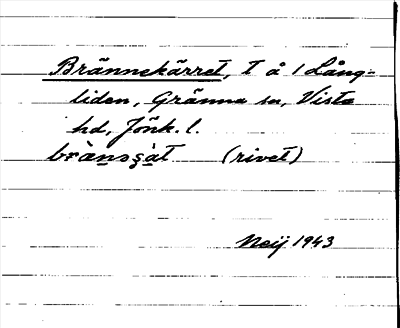 Brännekärret, T å 1 Lång-
liden, Gränna sn, Vista
hd, Jönk. l.
brànəʒàt (rivet)
Neij 1943